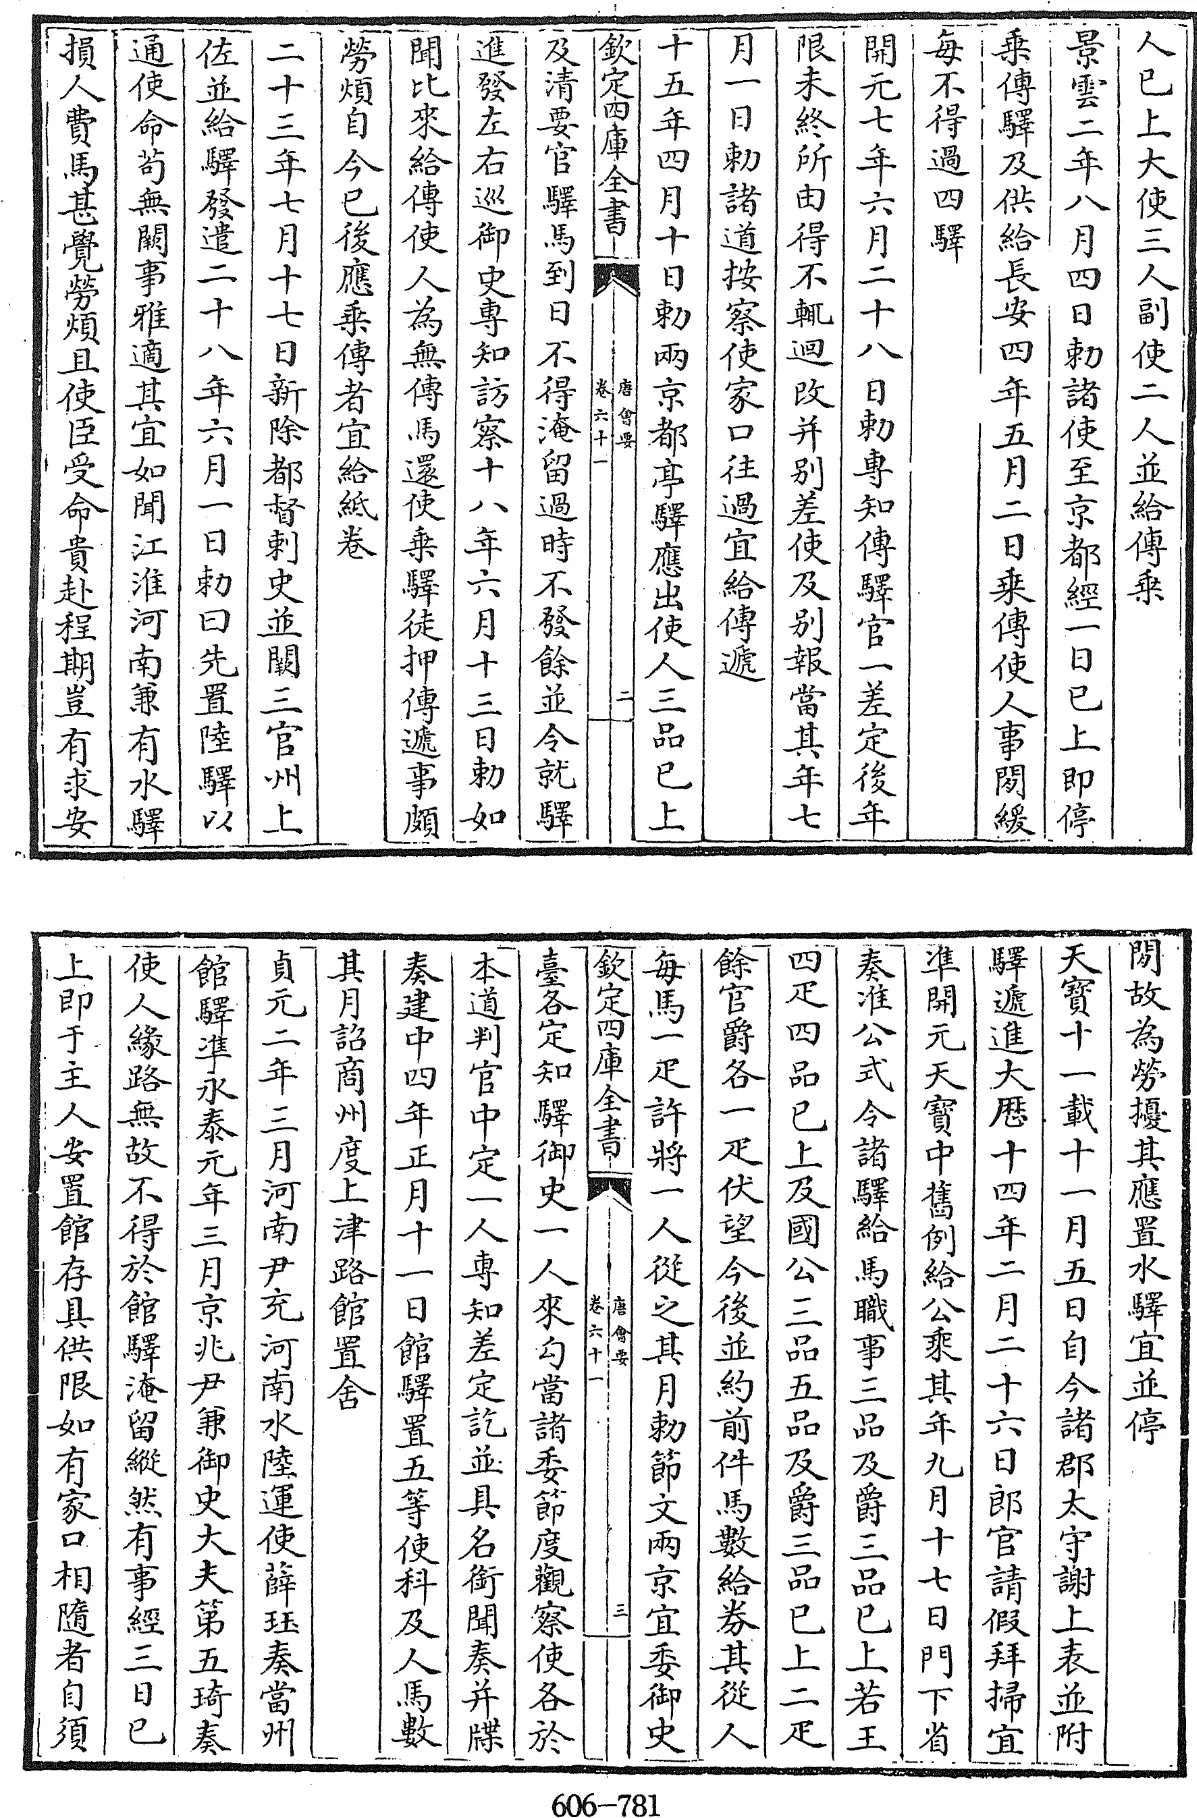 人已上大使三人副使二人並給傳乗
景雲二年八月四日勅諸使至京都經一日已上即停
乗傳驛及供給長安四年五月二日乗傳使人事閒緩
每不得過四驛
開元七年六月二十八日勅專知傳驛官一差定後年
限未終所由得不輒迴改并别差使及别報當其年七
月一日勅諸道按察使家口往過宜給傳遞
十五年四月十日勅兩京都亭驛應出使人三品已上
欽定四庫全書
唐會要
卷六十一
二
及清要官驛馬到日不得淹留過時不發餘並令就驛
進發左右巡御史專知訪察十八年六月十三日勅如
聞比來給傳使人為無傳馬還使乗驛徒押傳遞事頗
勞煩自今已後應乗傳者宜給紙卷
二十三年七月十七日新除都督刺史並闕三官州上
佐並給驛發遣二十八年六月一日勅曰先置陸驛以
通使命茍無闕事雅適其宜如聞江淮河南兼有水驛
損人費馬甚覺勞煩且使臣受命貴赴程期豈有求安
閒故為勞擾其應置水驛宜並停
天寶十一載十一月五日自今諸郡太守謝上表並附
驛遞進大厯十四年二月二十六日郎官請假拜掃宜
準開元天寶中舊例給公乘其年九月十七日門下省
奏准公式令諸驛給馬職事三品及爵三品已上若王
四疋四品已上及國公三品五品及爵三品已上二疋
餘官爵各一疋伏望今後並約前件馬數給券其從人
每馬一疋許將一人從之其月勅節文兩京宜委御史
欽定四庫全書
唐會要
卷六十一
三
臺各定知驛御史一人來勾當諸委節度觀察使各於
本道判官中定一人專知差定訖並具名銜聞奏并牒
奏建中四年正月十一日館驛置五等使科及人馬數
其月詔商州度上津路館置舍
貞元二年三月河南尹充河南水陸運使薛珏奏當州
館驛準永泰元年三月京兆尹兼御史大夫第五琦奏
使人緣路無故不得於館驛淹留縱然有事經三日已
上即于主人安置館存其供限如有家口相隨者自須
606-781